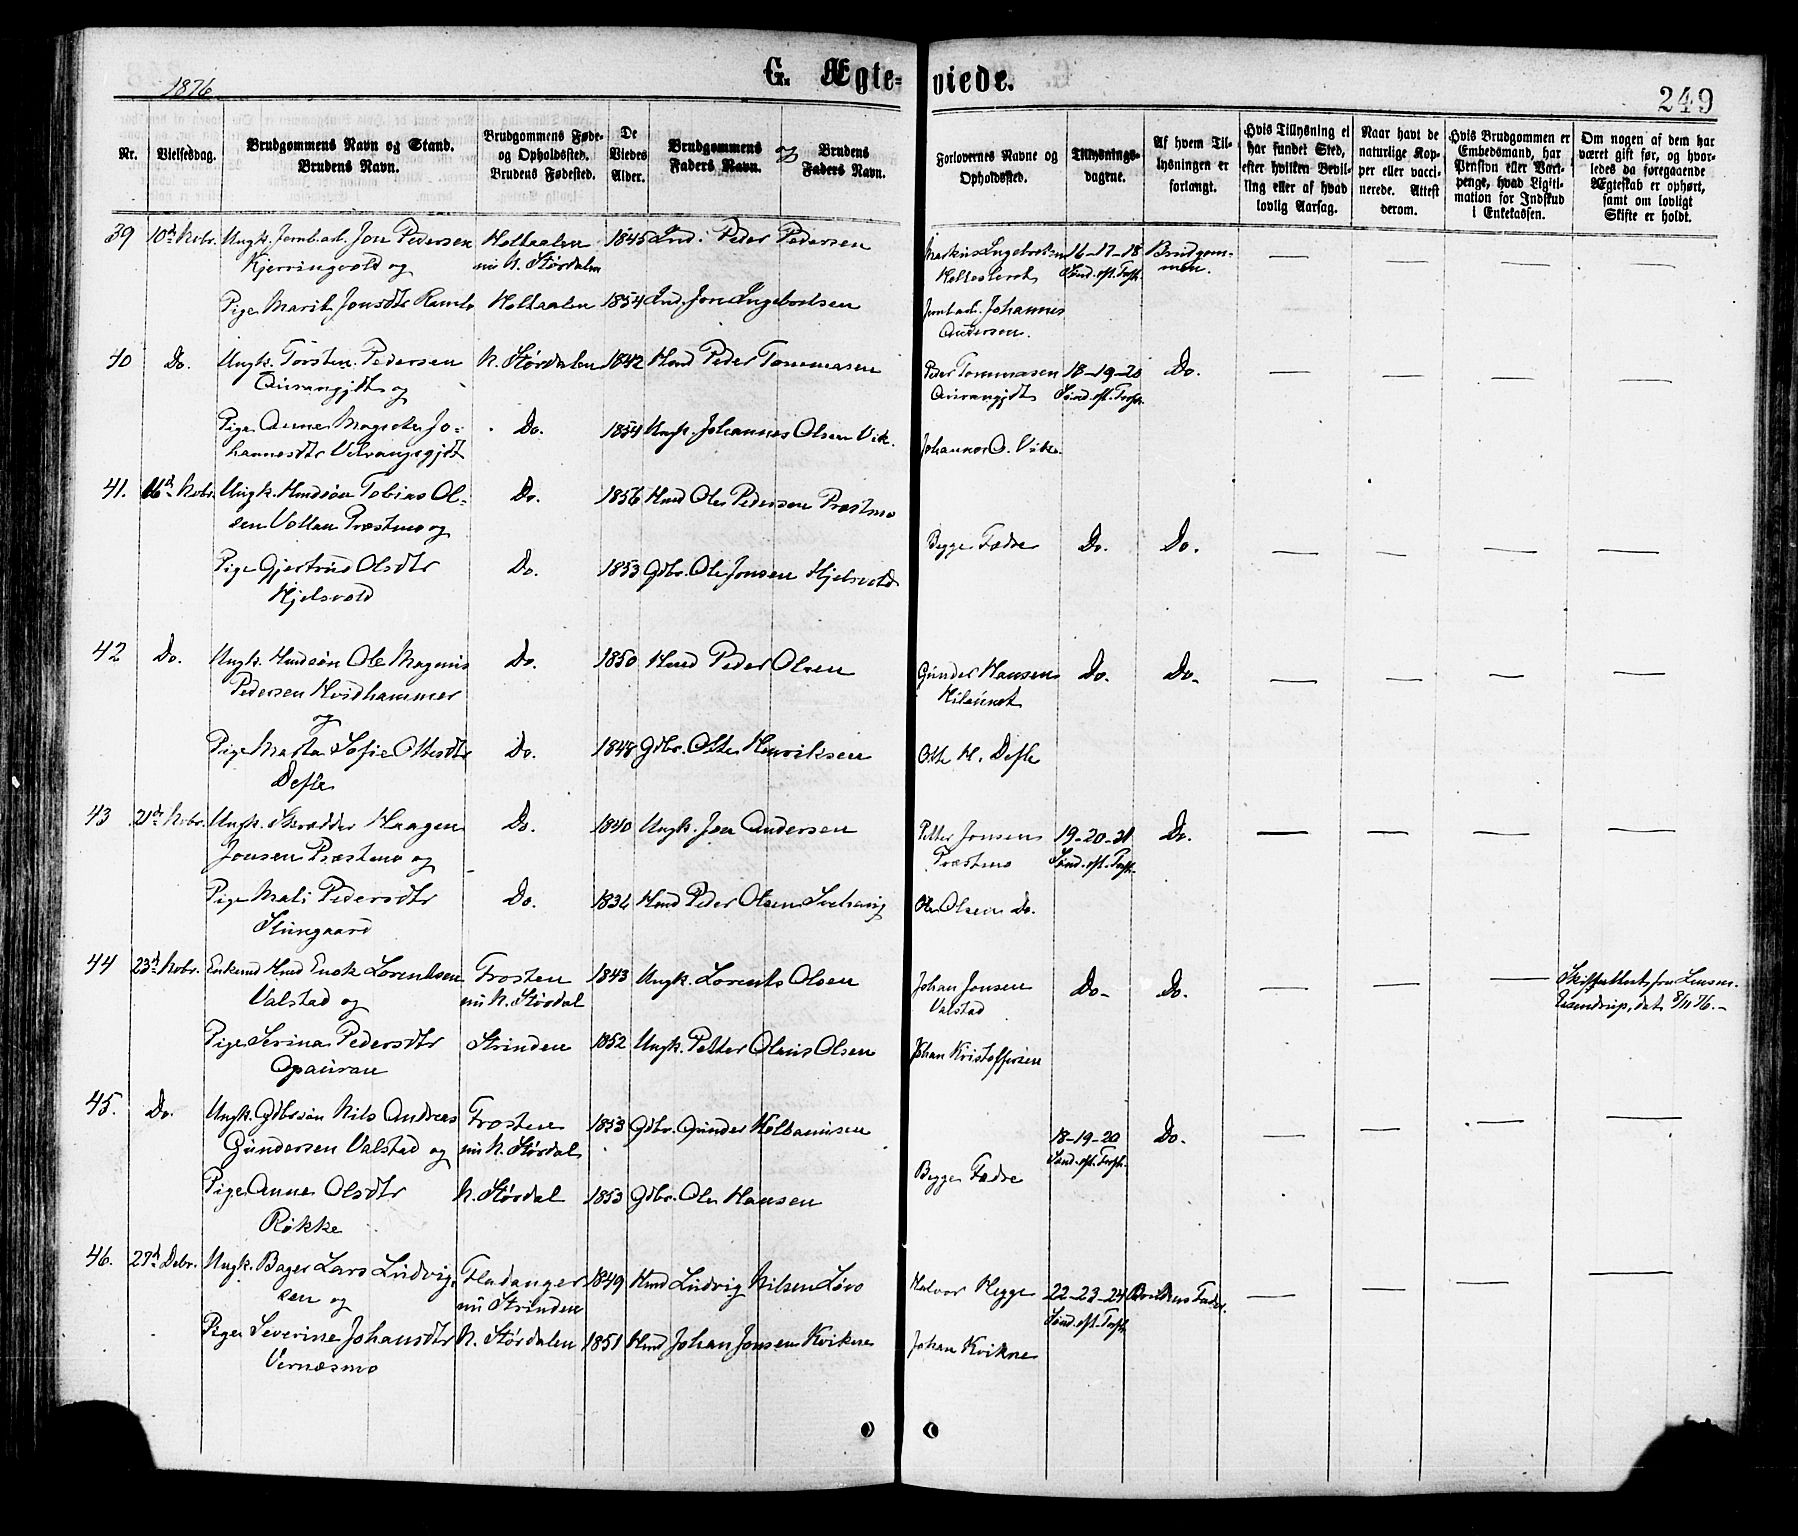 1876
G. Ægte-
viede.
249
Nr.
Vielsesdag.
Brudgommens Navn og Stand.
Brudens Navn.
Brudgommens Føde-
og Opholdssted.
Brudens Fødested.
De
Viedes
Alder.
Brudgommens
Faders Navn.
Brudens
Faders Navn.
Forlovernes Navne og
Opholdssted.
Tillysnings-
dagene.
Af hvem Til-
lysningen er
forlangt.
Hvis Tillysning ei
har fundet Sted,
efter hvilken Bevil-
ling eller af hvad
lovlig Aarsag.
Naar havt de
naturlige Kop-
per eller vacci-
nerede. Attest
derom.
Hvis Brudgommen er
Embedsmand, har
Pension eller Vart-
penge, hvad Ligiti-
mation for Indskud
i Enkekassen.
Om nogen af dem har
været gift før, og hvor-
ledes da foregaaende
Ægteskab er ophørt,
samt om lovligt
Skifte er holdt.
39 10de Novbr. Ungk. Jernb.arb. Jon Pedersen Holtaalen 1845 Ind. Peder Pedersen
Kjerringvold og nu N. Størdalen
Pige Marit Jonsdtr Ramlo Holtaalen 1854 Ind. Jon Ingebrtsen
16-17-18 Brudgom-
Sønd. eft. Trefh. men.
Jernb.arb. Johannes
Andersen.
40 Do. Ungk. Torsten Pedersen N. Størdalen 1842 Hmd Peder Tommasen
og
Pige Anne Jo- Do. 1854 Ungk. Johannes Olsen Vik.
hannesdtr
Peder Tommasen 18-19-20 Do.
Sønd. eft. Trefh.
Johannes O. Vik
41. 16de Novbr. Ungk. Hmdsøn Tobias Ol- Do. 1856 Hmd Ole Pedersen Præstmo
sen Vollan Præstmo og
Pige Gjertrud Olsdtr Do. 1853 Gdbr. Ole Jonsen Hjelsvold
Hjelsvold
Begge Fædre Do. Do.
42 Do. Ungk. Hmdsøn Ole Magnus Do. 1850 Hmd Peder Olsen
Pedersen Hvidhammer
og
Pige Marta Sofie Ottesdtr Do. 1848 Gdbr. Otte Henriksen
Defle
Gunder Hansen Do. Do.
Otte H. Defle
43 21de Novbr. Ungk. Skrædder Haagen Do. 1840 Ungk. Jon Andersen
Jonsen Præstmo og
Pige Mali Pedersdtr Do. 1834 Hmd Peder Olsen
Petter Jonsen 19-20-21 Do.
Præstmo Sønd. eft. Trefh.
Ole Olsen Do.
44 23de Novbr. Enkemd Hmd Enok Lorentsen Frosten 1843 Ungk. Lorents Olsen
Valstad og nu N. Størdal
Pige Serina Pedersdtr Strinden 1852 Ungk. Petter Olaus Olsen
Johan Jonsen Do. Do. Skifteattest fra Lensm.
Valstad dat. 8/11 76.
Johan Kristoffersen
45. Do. Ungk. Gdbrsøn Nils Andreas Frosten 1853 Gdbr. Gunder
Gundersen Valstad og nu N. Størdal
Pige Anne Olsdtr N. Størdal 1853 Gdbr. Ole Hansen
Røkke
18-19-20 Do.
Sønd. eft. Trefh.
Begge Fædre
46. 27de Debr. Ungk. Bager Lars Ludvig- Fladanger 1849 Hmd Ludvig Nilsen Løvo
sen og nu Strinden
Pige Severine Johansdtr N. Størdalen 1851 Hmd Johan Jonsen Kvikne
Vernæsmo
Halvor Hegge 22-23-24 Brudens Fader.
Sønd. eft. Trefh.
Johan Kvikne